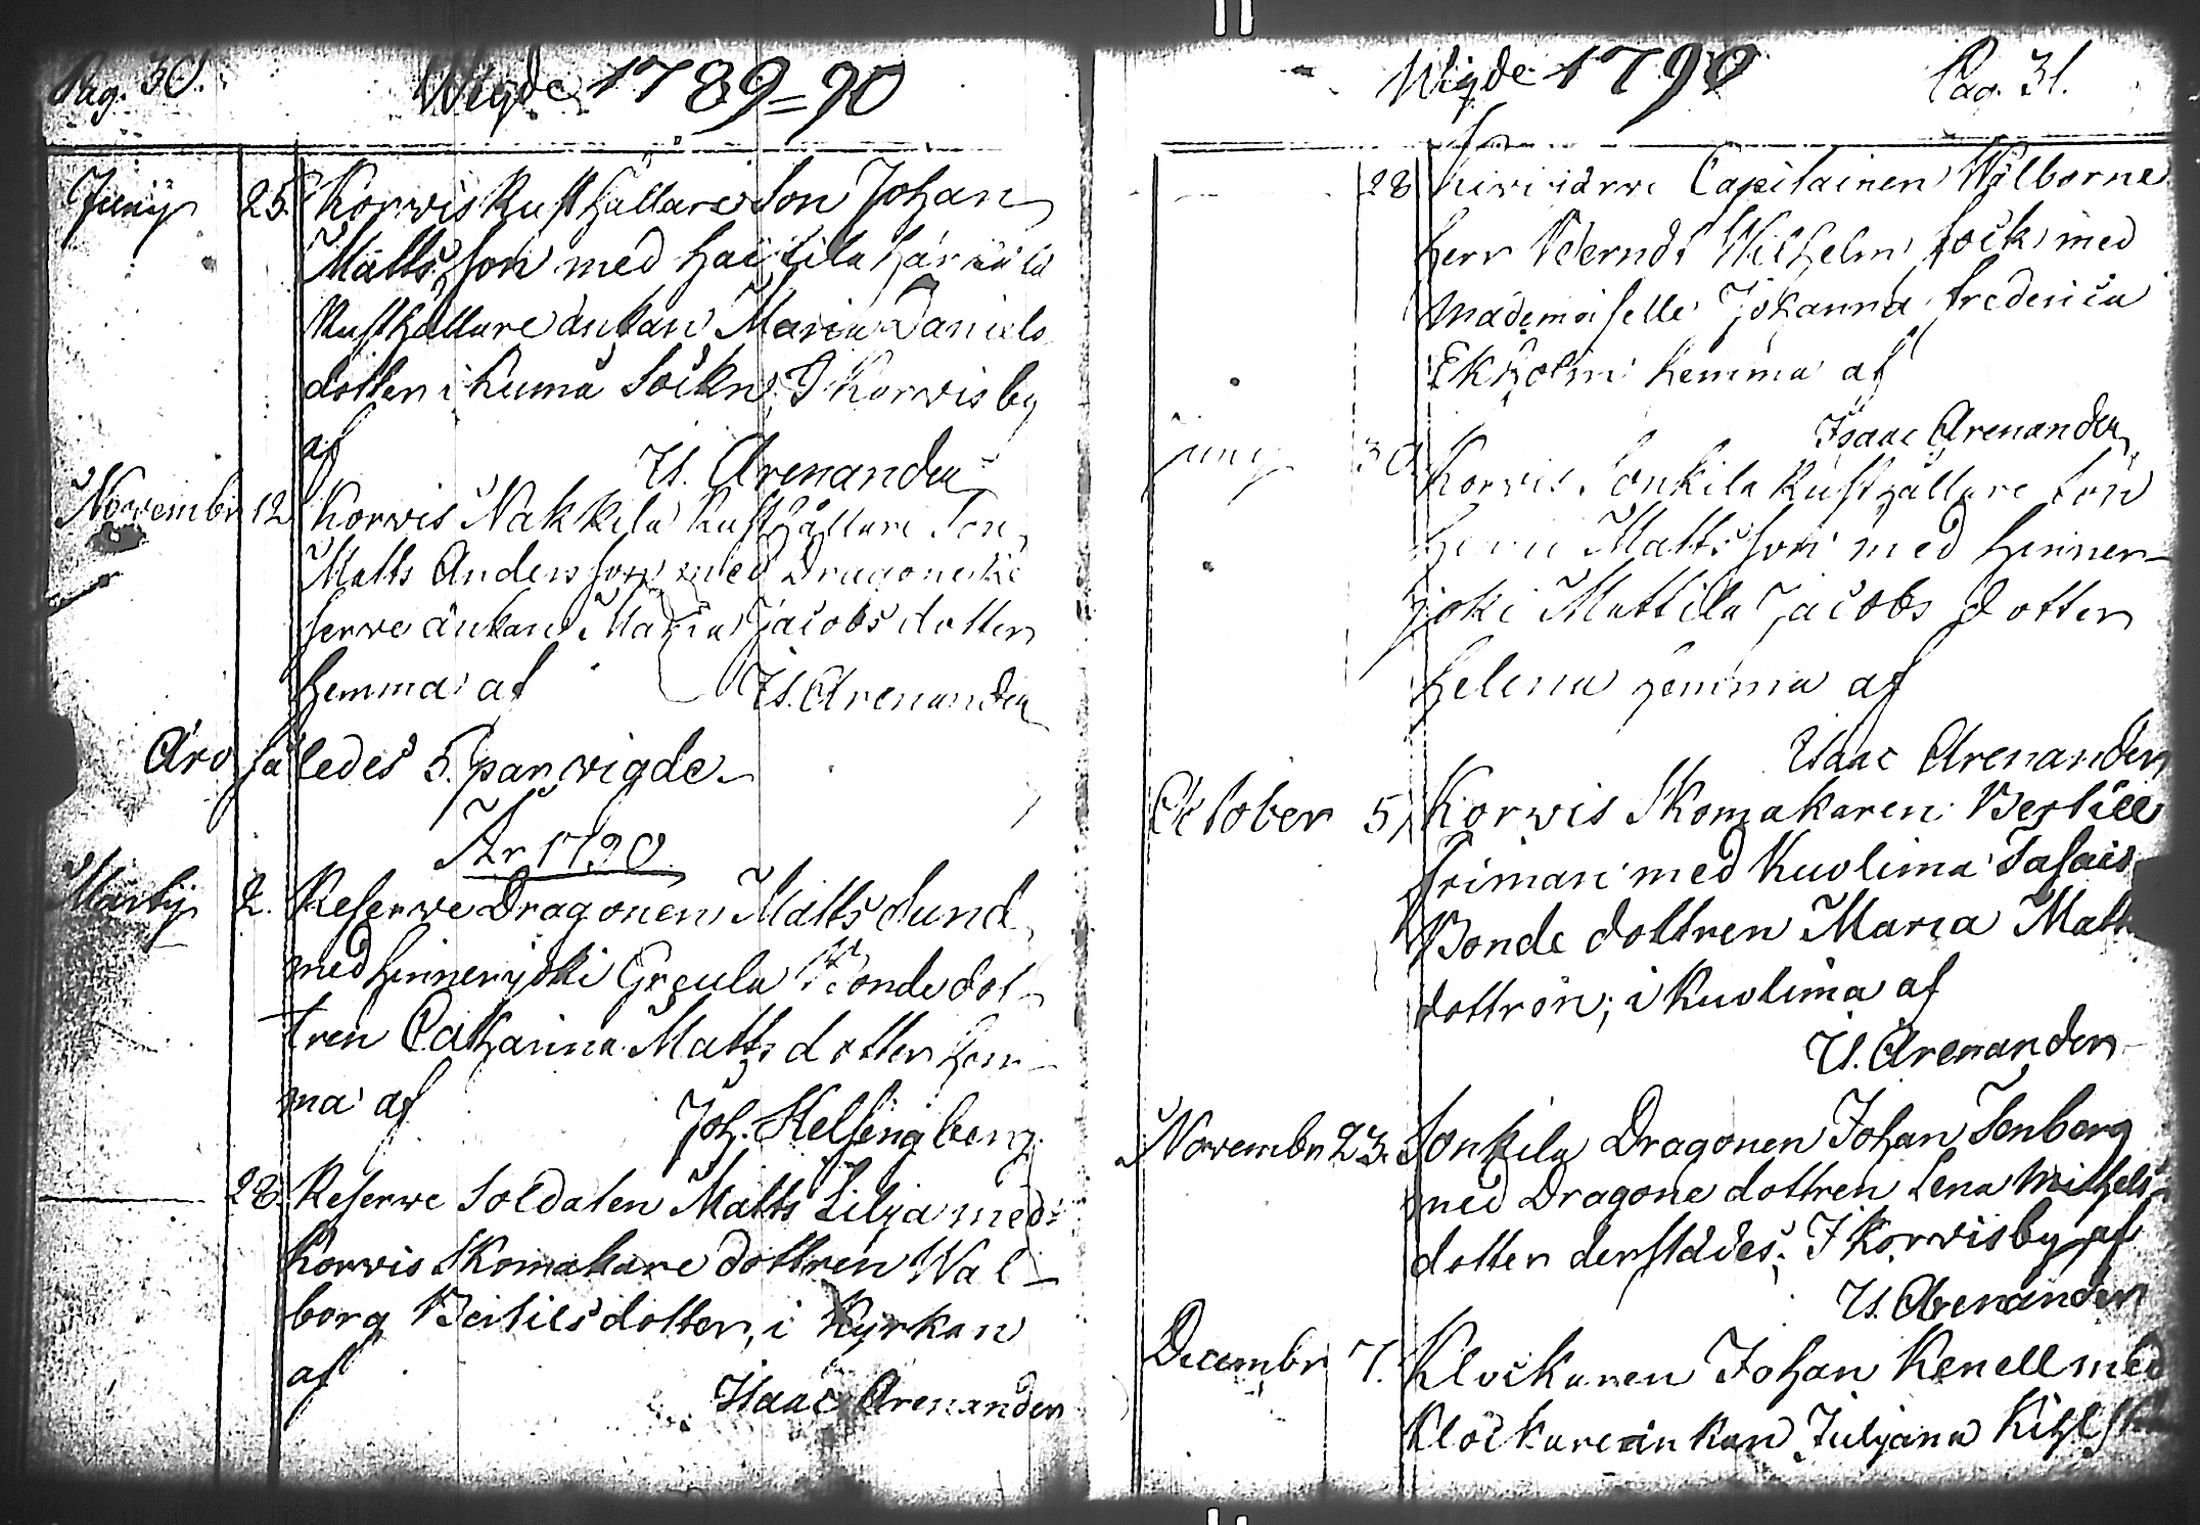 Pag. 30.
Wigde 1789=90
Junij 25. Korvis Rusthållare Son Johan
Matts son med Haikila
Rusthållare änkan Maria Daniels
dotter i Kumå Sockn, I Korvis by
af
Is. Arenander
Novembr 12 Korvis Nakkila Rusthållare Son
Matts Andersson med Dragone Re
serve änkan Maria Jacobs dotter
hemma af Is. Arenander
Äro således 5. par wigde
År 1790
Martij 2. Reserwe Dragonen Matts Lund
med Hinnerjoki Greula Bonde dot-
tren Catharina Matts dotter hem-
ma af
Joh. Helsingberg
28. Reserwe Soldaten Matts Lilja med
Korvis Skomakare dottren Wal-
borg Bertilsdotter, i Kyrkan
af
Isaac Arenander
Wigde 1790
Pag. 31.
28 Capitainen Wälborne
Herr Berndt Wilhelm Fock med
Mademoiselle Johanna Frederica
Ekholm hemma af
Isaac Arenander
Junij 30 Korvis Sonkila Rusthållare Son
Matts son med Hinner-
joki Mattila Jacobs dotter
Helena hemma af
Isaac Arenander
October 5, Korvis Skomakaren Bertill
Friman med Kuolima
Bonde dottren Maria Matts
dottron; i Kuolima af
Is. Arenander
Novembr 23. Sonkila Dragonen Johan Senberg
med Dragone dottren Lena Michels
dotter derstädes. I Korvis by af
Is. Arenander
Decembr 7. Klockaren Johan Kenell med
Klockare änkan Juljana